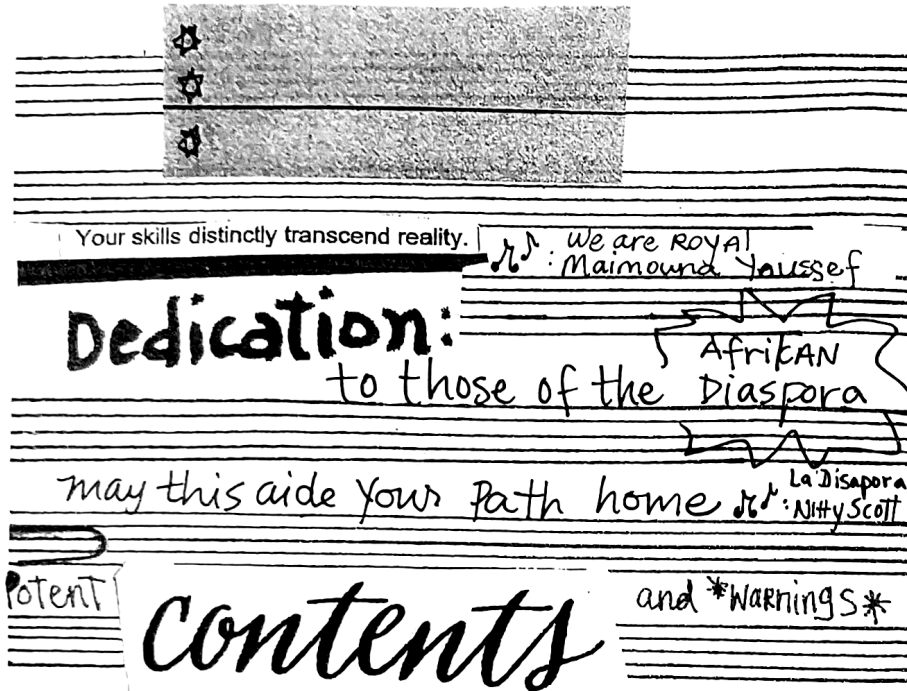 Your skills distinctly transcend reality.
: We are ROYAl
Maimouna Youssef
Dedication:
to those of the AfriKAN Diaspora
may this aide your Path home
: La'Disapora
Nitty Scott
Potent Contents and *WARnings*